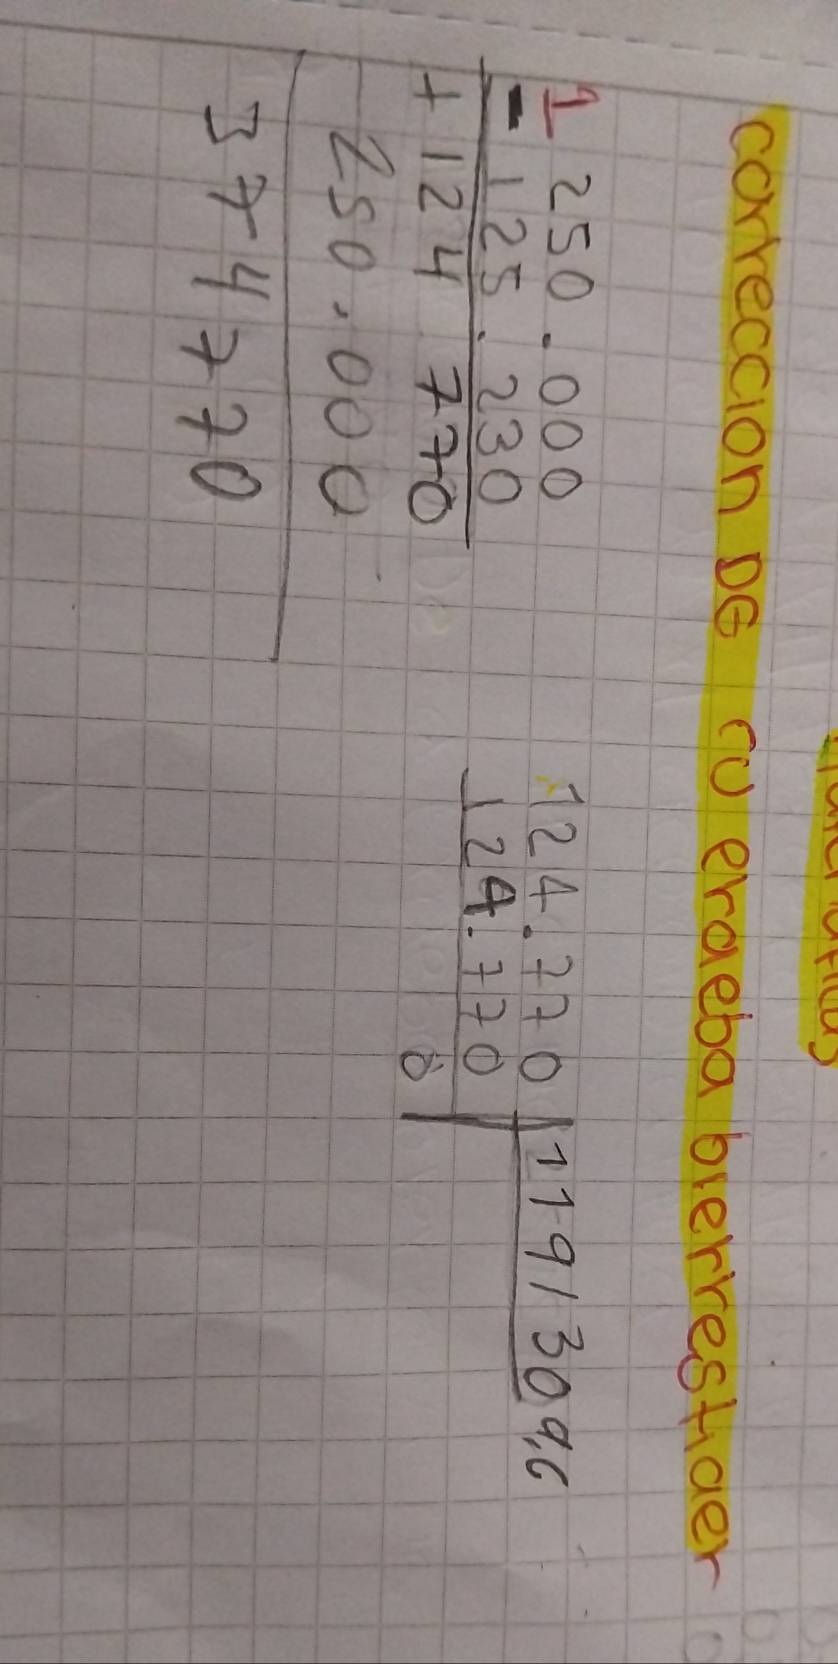 correccion DE cu eraeba bierrestraer
1 250.000
- 125.230
+ 124 770
250.000
374770
124.770 1191309,6
124.770
0